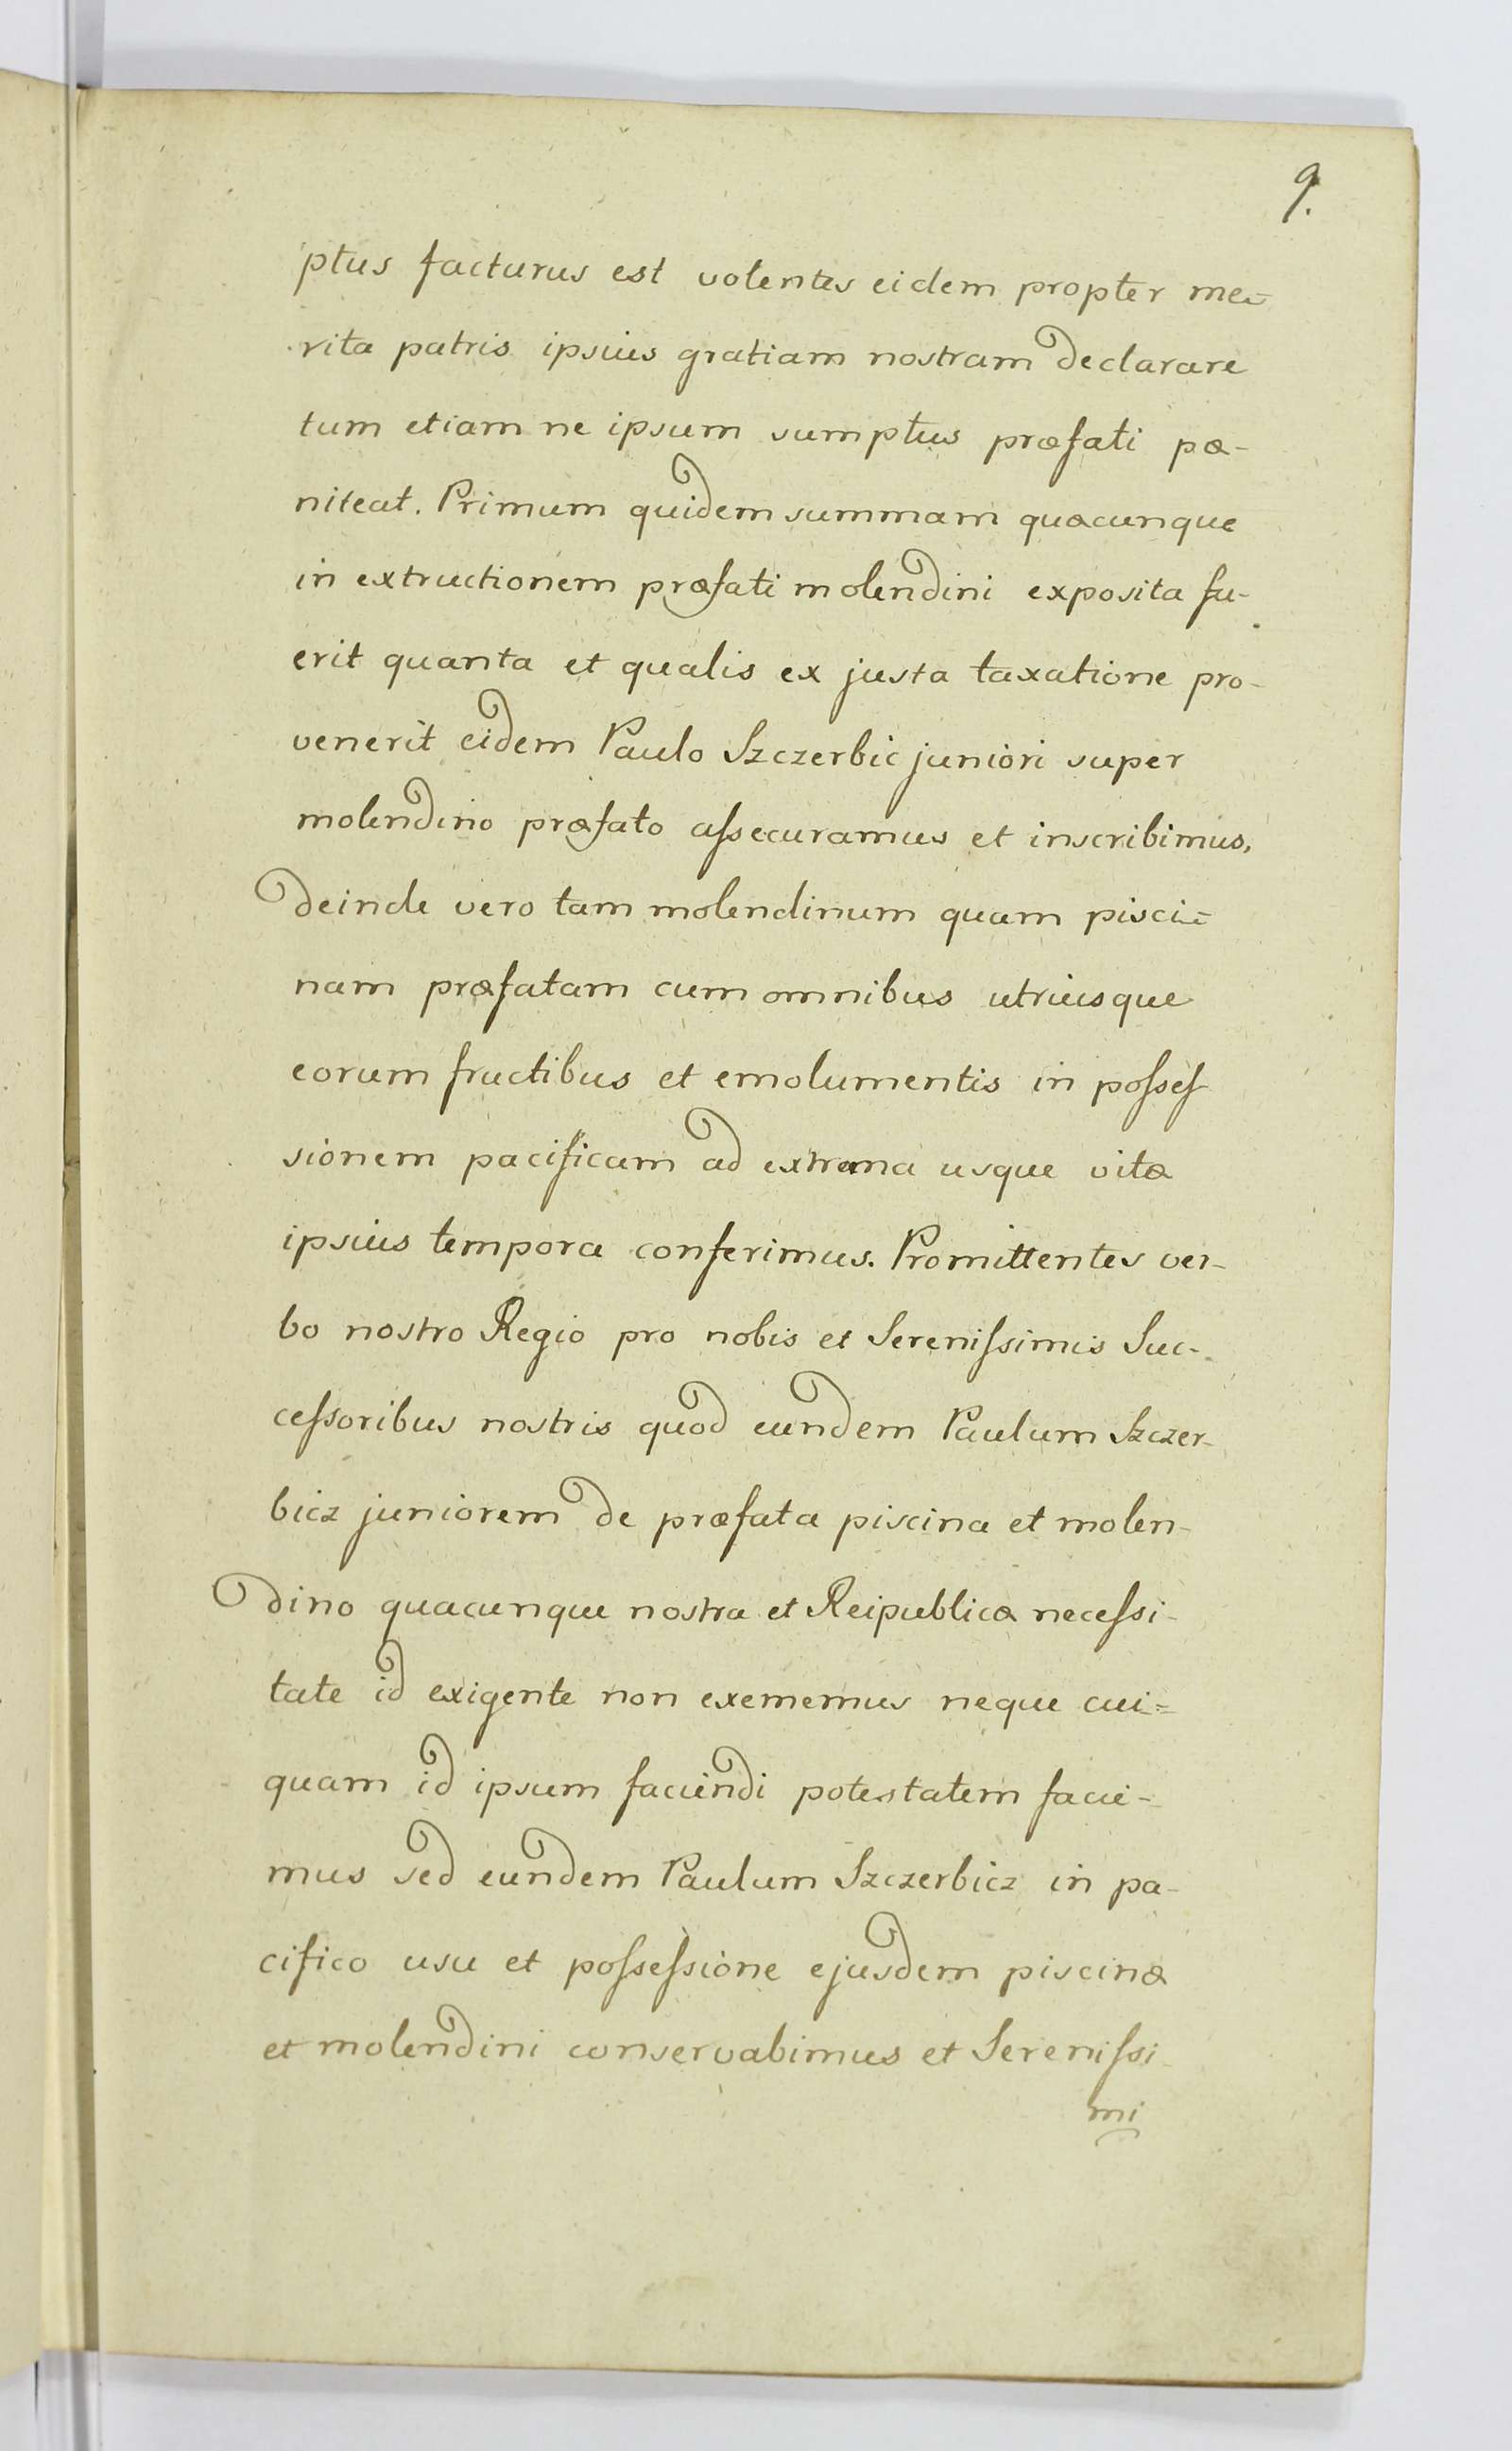 9.
ptus facturus est volentes eidem propter me-
rita patris ipsius gratiam nostram declarare
tum etiam ne ipsum sumptus præfati pæ-
niteat. Primum quidem summam quacunque
in extructionem præfati molendini exposita fu-
erit quanta et qualis ex justa taxatione pro-
venerit eidem Paulo Szczerbic juniori super
molendino præfato aſsecuramus et inscribimus,
deinde vero tam molendinum quam pisci=
nam præfatam cum omnibus utriusque
eorum fructibus et emolumentis in poſseſ
sionem pacificam ad extrema usque vitæ
ipsius tempora conferimus. Promittentes ver-
bo nostro Regio pro nobis et Sereniſsimis Suc-
ceſsoribus nostris quod eundem Paulum Szczer-
bicz juniorem de præfata piscina et molen-
dino quacunque nostra et Reipublicæ neceſsi-
tate id exigente non exememus neque cui=
quam id ipsum faciendi potestatem facie-
mus sed eundem Paulum Szczerbicz in pa-
cifico usu et poſseſsione ejusdem piscinæ
et molendini conservabimus et Sereniſsi-
mi